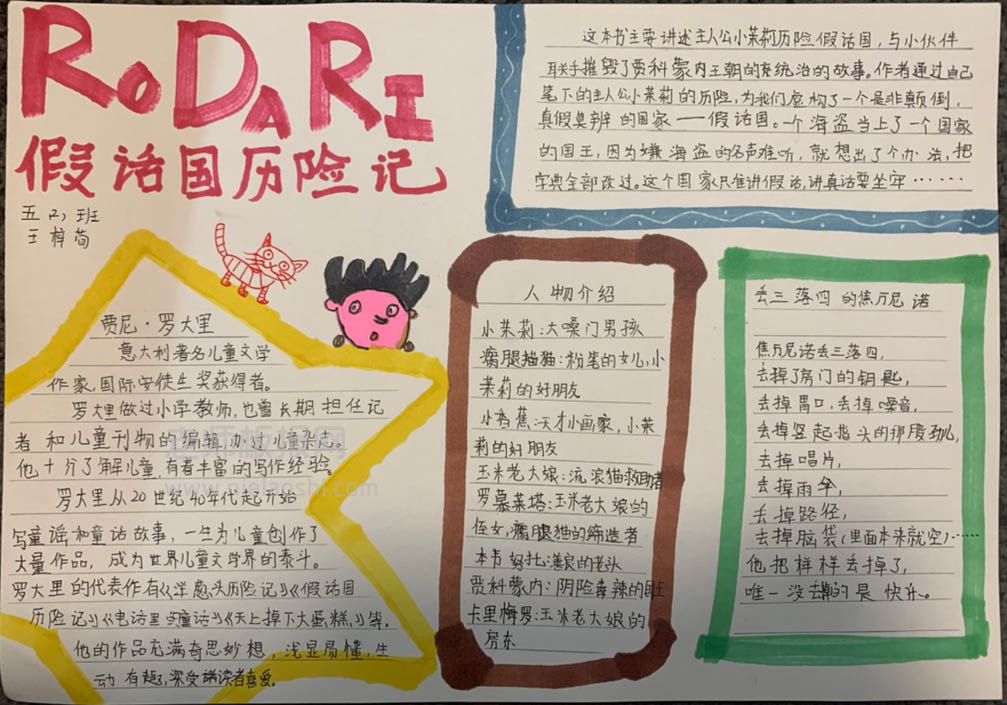 RODARI
假话国历险记
五(2)班
王梓荀
贾尼·罗大里
意大利著名儿童文学
作家,国际安徒生奖获得者。
罗大里做过小学教师,也曾长期担任记
者和儿童刊物的编辑办过儿童杂志。
他十分了解儿童,有着丰富的写作经验。
罗大里从20世纪40年代起开始
写童谣和童话故事,一生为儿童创作了
大量作品,成为世界儿童文学界的泰斗。
罗大里的代表作有《洋葱头历险记》《假话国
历险记》《电话里的童话》《天上掉下大蛋糕》等,
他的作品充满奇思妙想,浅显易懂,生
动有趣,深受读者喜爱。
这本书主要讲述主人公小茉莉历险假话国,与小伙伴
联手摧毁了贾科蒙内王朝的统治的故事。作者通过自己
笔下的主人公小茉莉的历险,为我们虚构了一个是非颠倒,
真假莫辨的国家——假话国。一个海盗当上了一个国家
的国王,因为嫌海盗的名声难听,就想出了个办法,把
字典全部改过。这个国家只准讲假话,讲真话要坐牢……
人物介绍
小茉莉:大嗓门男孩
瘸腿猫猫:粉笔的女儿,小
茉莉的好朋友
小香蕉:天才小画家,小茉
莉的好朋友
玉米老大娘:流浪猫救助者
罗慕莱塔:玉米老大娘的
侄女,瘸腿猫的缔造者
本韦努托:善良的老头
贾科蒙内:阴险毒辣的国王
卡里梅罗:玉米老大娘的
房东
丢三落四的焦万尼诺
焦万尼诺丢三落四,
丢掉了房门的钥匙,
丢掉胃口,丢掉嗓音,
丢掉竖起指头的那股劲儿,
丢掉唱片,
丢掉雨伞,
丢掉路径,
丢掉脑袋(里面本来就空)……
他把样样丢掉了,
唯一没丢掉的是快乐。
老师板报网
www.pielaoshi.com